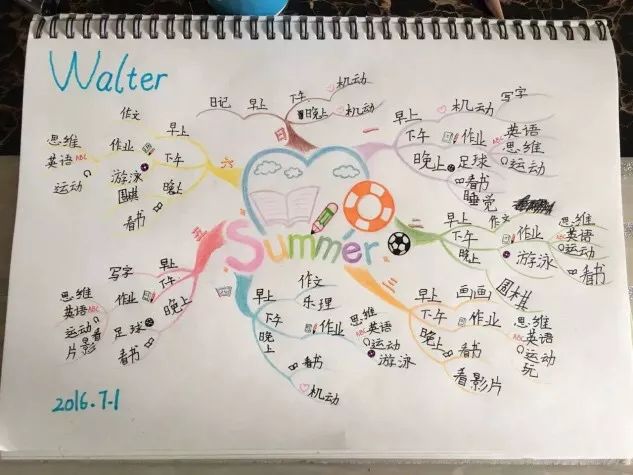 Walter
日
日记
早上
下午
机动
晚上
机动
一
早上
机动
写字
下午
作业
ABC
英语
思维
运动
晚上
足球
看书
睡觉
二
早上
作文
下午
作业
思维
ABC
英语
运动
晚上
游泳
看书
围棋
三
早上
画画
下午
作业
思维
ABC
英语
运动
玩
晚上
看书
看影片
早上
作文
乐理
下午
作业
思维
ABC
英语
运动
游泳
晚上
看书
机动
五
早上
写字
下午
作业
思维
英语
ABC
运动
看影片
晚上
足球
看书
六
早上
作文
下午
作业
思维
英语
ABC
运动
游泳
围棋
晚上
看书
Summer
2016.7-1